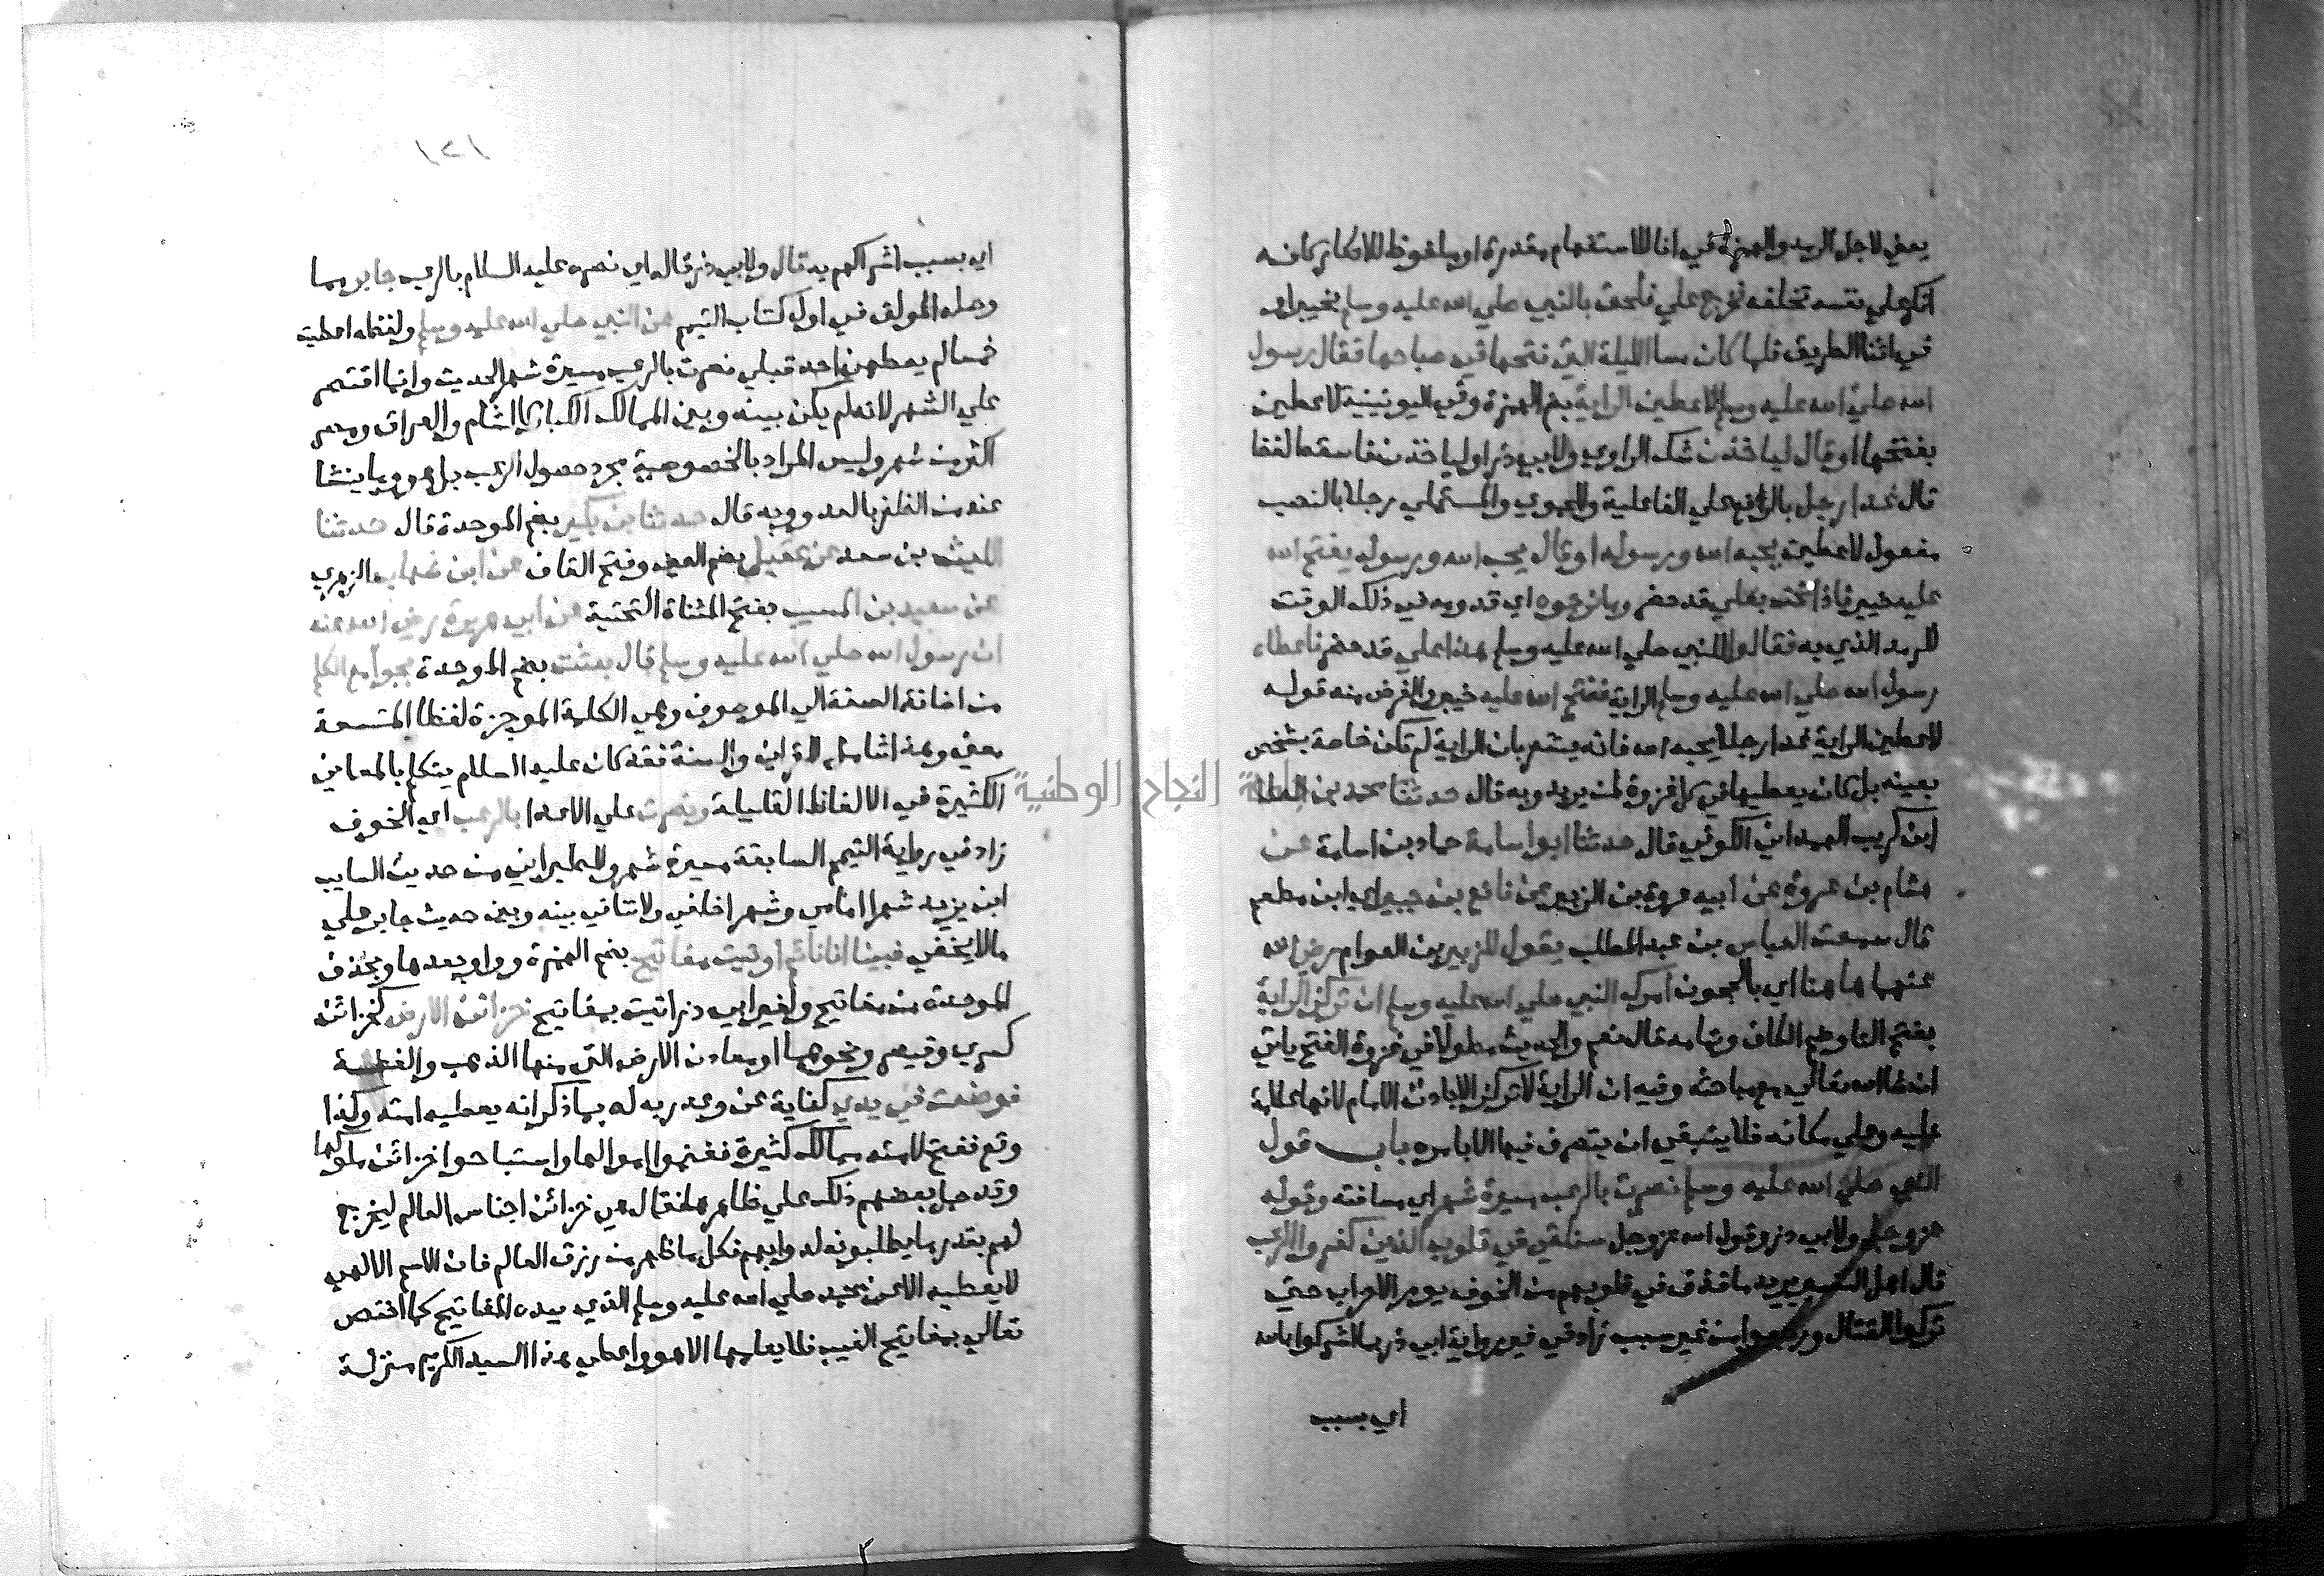 يعني لاجل الرمد والهمزة في انا للاستفهام مقدرة او ملفوظ للانكار كانه
انكر علي نفسه تخلفه فخرج علي فلحق بالنبي صلي الله عليه وسلم بخيبر او
في اثنا الطريق فلما كان مسا الليلة التي فتحها في صباحها فقال رسول
الله صلي الله عليه وسلم لاعطين الراية بضم الهمزة وفي اليونينية لاعطين
بفتحها او قال لياخذن شك الراوي ولابي ذر او لياخذن فاسقط لفظ
قال غدا رجل بالرفع علي الفاعلية وللحموي والمستملي رجلا بالنصب
مفعول لاعطين يحبه الله ورسوله او قال يحب الله ورسوله يفتح الله
عليه خيبر فاذا نحن بعلي قد حضر وما نرجوه اي قدومه في ذلك الوقت
للرمد الذي به فقالوا للنبي صلي الله عليه وسلم هذا علي قد حضر فاعطاه
رسول الله صلي الله عليه وسلم الراية ففتح الله عليه خيبر والغرض منه قوله
لاعطين الراية غدا رجلا يحبه الله فانه يشعر بان الراية لم تكن خاصة بشخص
بعينه بل كان يعطيها في كل غزوة لمن يريد وبه قال حدثنا محمد بن العلا
ابن كريب الهمداني الكوفي قال حدثنا ابو اسامة حماد بن اسامة عن
هشام بن عروة عن ابيه عروة بن الزبير عن نافع بن جبير اي ابن مطعم
قال سمعت العباس بن عبد المطلب يقول للزبير بن العوام رضي الله
عنهما هاهنا اي بالحجون امرك النبي صلي الله عليه وسلم ان تركز الراية
بفتح التا وضم الكاف وتمامه قال نعم والحديث مطولا في غزوة الفتح ياتي
ان شا الله تعالي مع مباحثه وفيه ان الراية لا تركز الا باذن الامام لانها علامة
عليه وعلي مكانه فلا ينبغي ان يتصرف فيها الا بامره باب قول
النبي صلي الله عليه وسلم نصرت بالرعب مسيرة شهر اي مسافته وقوله
عز وجل ولابي ذر وقول الله عز وجل سنلقي في قلوب الذين كفروا الرعب
قال اهل التفسير يريد ما قذف في قلوبهم من الخوف يوم الاحزاب حتي
تركوا القتال ورجعوا من غير سبب زاد في غير رواية ابي ذر بما اشركوا بالله
اي بسبب
١٢١
اي بسبب اشراكهم به قال ولابي ذر قاله اي نصره عليه السلام بالرعب جابر مما
وصله المولف في اول كتاب التيمم عن النبي صلي الله عليه وسلم ولفظه اعطيت
خمسا لم يعطهن احد قبلي نصرت بالرعب مسيرة شهر الحديث وانما اقتصر
علي الشهر لانه لم يكن بينه وبين الممالك الكبار كالشام والعراق ومصر
اكثر من شهر وليس المراد بالخصوصية مجرد حصول الرعب بل هو وما ينشا
عنه من الظفر بالعدو وبه قال حدثنا بن بكير بضم الموحدة قال حدثنا
الليث بن سعد عن عقيل بضم العين وفتح القاف عن ابن شهاب الزهري
عن سعيد بن المسيب بفتح المثناة التحتية عن ابي هريرة رضي الله عنه
ان رسول الله صلي الله عليه وسلم قال بعثت بضم الموحدة بجوامع الكلم
من اضافة الصفة الي الموصوف وهي الكلمة الموجزة لفظا المتسعة
معني وهذا شامل للقران والسنة فقد كان عليه السلام يتكلم بالمعاني
الكثيرة في الالفاظ القليلة ونصرت علي الاعدا بالرعب اي الخوف
زاد في رواية التيمم السابقة مسيرة شهر وللطبراني من حديث السايب
ابن يزيد شهرا امامي وشهرا خلفي ولا تنافي بينه وبين حديث جابر علي
ما لا يخفي فبينا انا نائم اوتيت مفاتيح بضم الهمزة وواو بعدها وبحذف
الموحدة من مفاتيح ولغير ابي ذر اتيت بمفاتيح خزائن الارض كخزائن
كسري وقيصر ونحوهما او معادن الارض التي منها الذهب والفضة
فوضعت في يدي كناية عن وعد ربه له بما ذكر انه يعطيه امته وكذا
وقع ففتح لامته ممالك كثيرة فغنموا اموالها واستباحوا خزائن ملوكها
وقد حمل بعضهم ذلك علي ظاهره فقال هي خزائن اجناس العالم ليخرج
لهم بقدر ما يطلبونه لدوابهم فكل ما ظهر من رزق العالم فان الاسم الالهي
لا يعطيه الا عن محمد صلي الله عليه وسلم الذي بيده المفاتيح كما اختص
تعالي بمفاتيح الغيب فلا يعلمها الا هو واعطي هذا السيد الكريم منزلة
النجاح الوطنية